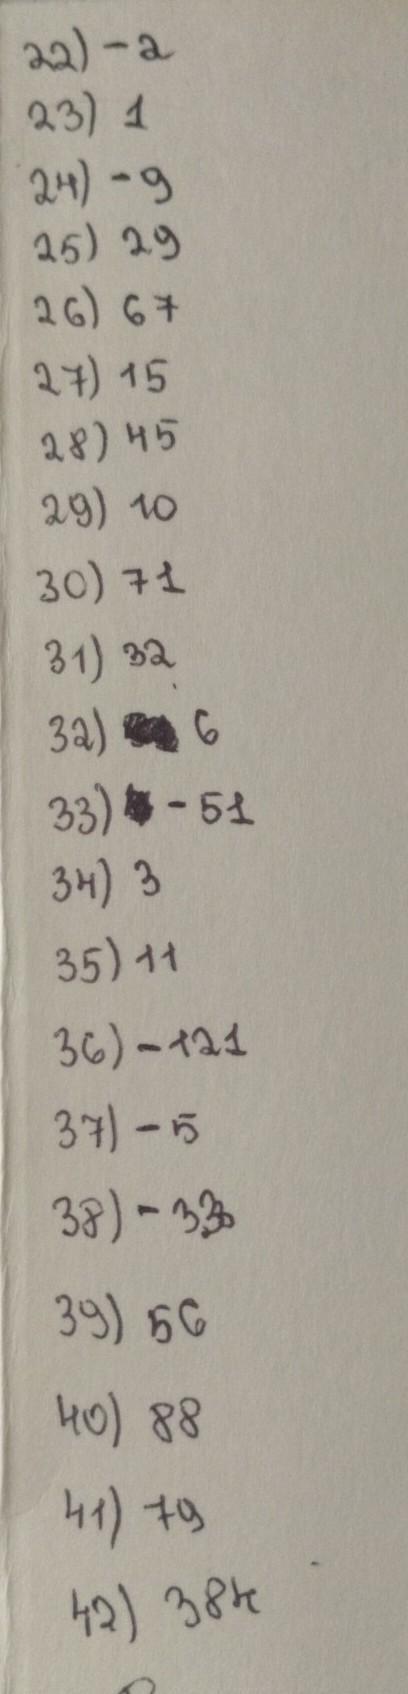 22) -2
23) 1
24) -9
25) 29
26) 67
27) 15
28) 45
29) 10
30) 71
31) 32
32) 6
33) -51
34) 3
35) 11
36) -121
37) -5
38) -33
39) 56
40) 88
41) 79
42) 384